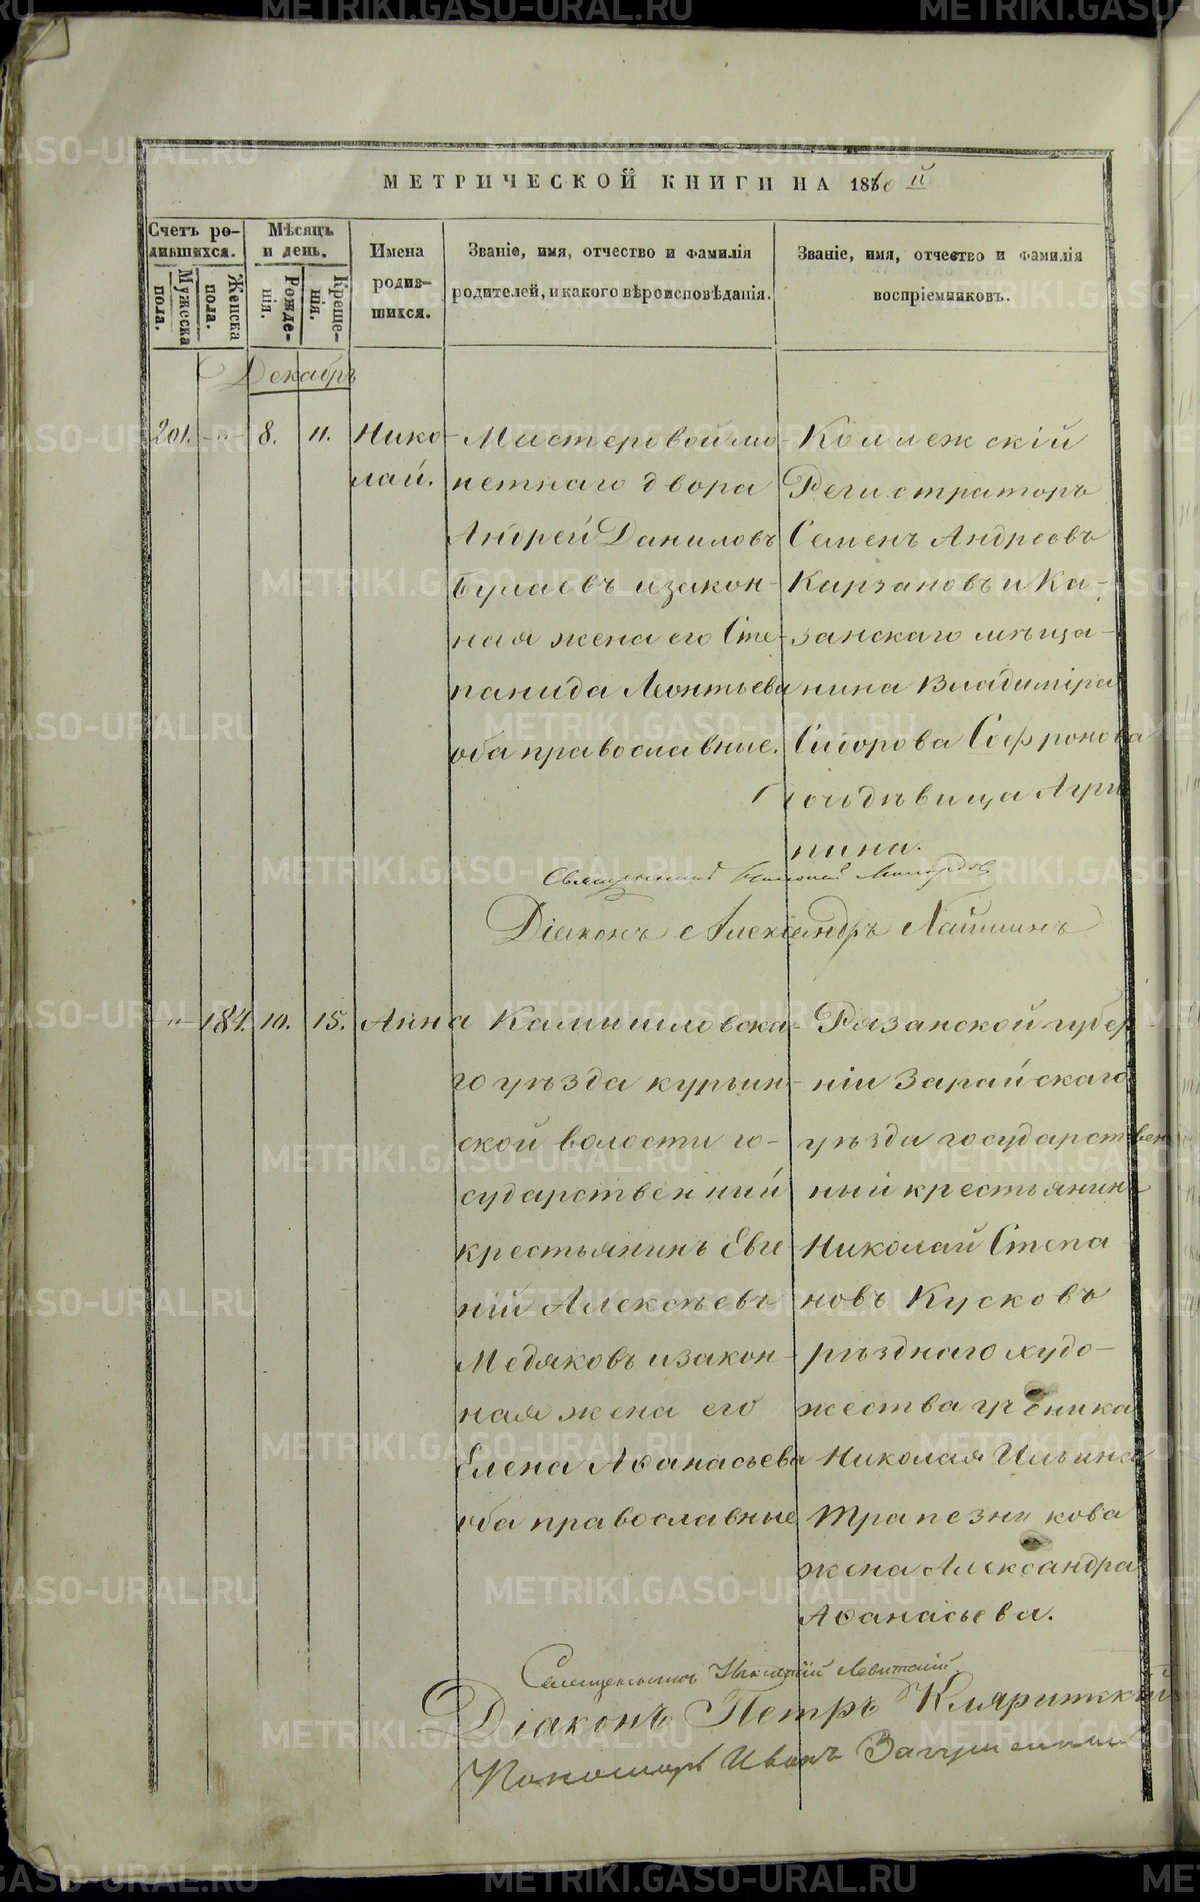 МЕТРИЧЕСКОЙ КНИГИ НА 1860 й
Счетъ ро-
дившихся.
Мужеска
пола.
Женска
пола.
Мѣсяцъ
и день.
Рожде-
нія.
Креще-
нія.
Имена
родив-
шихся.
Званіе, имя, отчество и фамилія
родителей, и какого вѣроисповѣданія.
Званіе, имя, отчество и фамилія
воспріемниковъ.
Декабрь
201. -"- 8. 11. Нико-
лай.
Мастеровой мо-
нетнаго двора
Андрей Даниловъ
Булаевъ и закон-
ная жена его Сте-
панида Леонтьева
оба православные.
Коллежскій
Регистраторъ
Семенъ Андреевъ
Кирзановъ и Ка-
занскаго мѣща-
нина Владиміра
Сидорова Софронова
дочь дѣвица Агри
пина.
Священникъ
Діаконъ Александръ
-"- 184. 10. 15. Анна
Камышловска-
го уѣзда курьин-
ской волости го-
сударственный
крестьянинъ Евге
ній Алексѣевъ
Медяковъ и закон-
ная жена его
Елена Аѳанасьева
оба православные
Рязанской губер-
ніи Зарайскаго
уѣзда государствен
ный крестьянинъ
Николай Степа
новъ Кусковъ
рѣзднаго худо-
жества ученика
Николая Ильина
Трапезникова
жена Александра
Аѳанасьева.
Священникъ Левитскій
Діаконъ Петръ
Пономарь Иванъ
METRIKI.GASO-URAL.RU